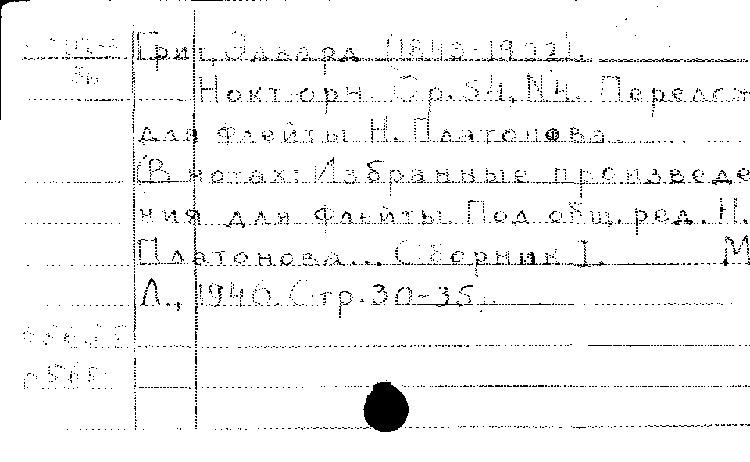 Григ, Эдвард (1843-1922).
Ноктюрн Op.54, N4. Перелож
для флейты Н. Платонова
(В нотах: Избранные произведе
ния для флейты Под общ. ред. Н.
Платонова... Сборник I. М
Л., 1946. Стр. 30-35.